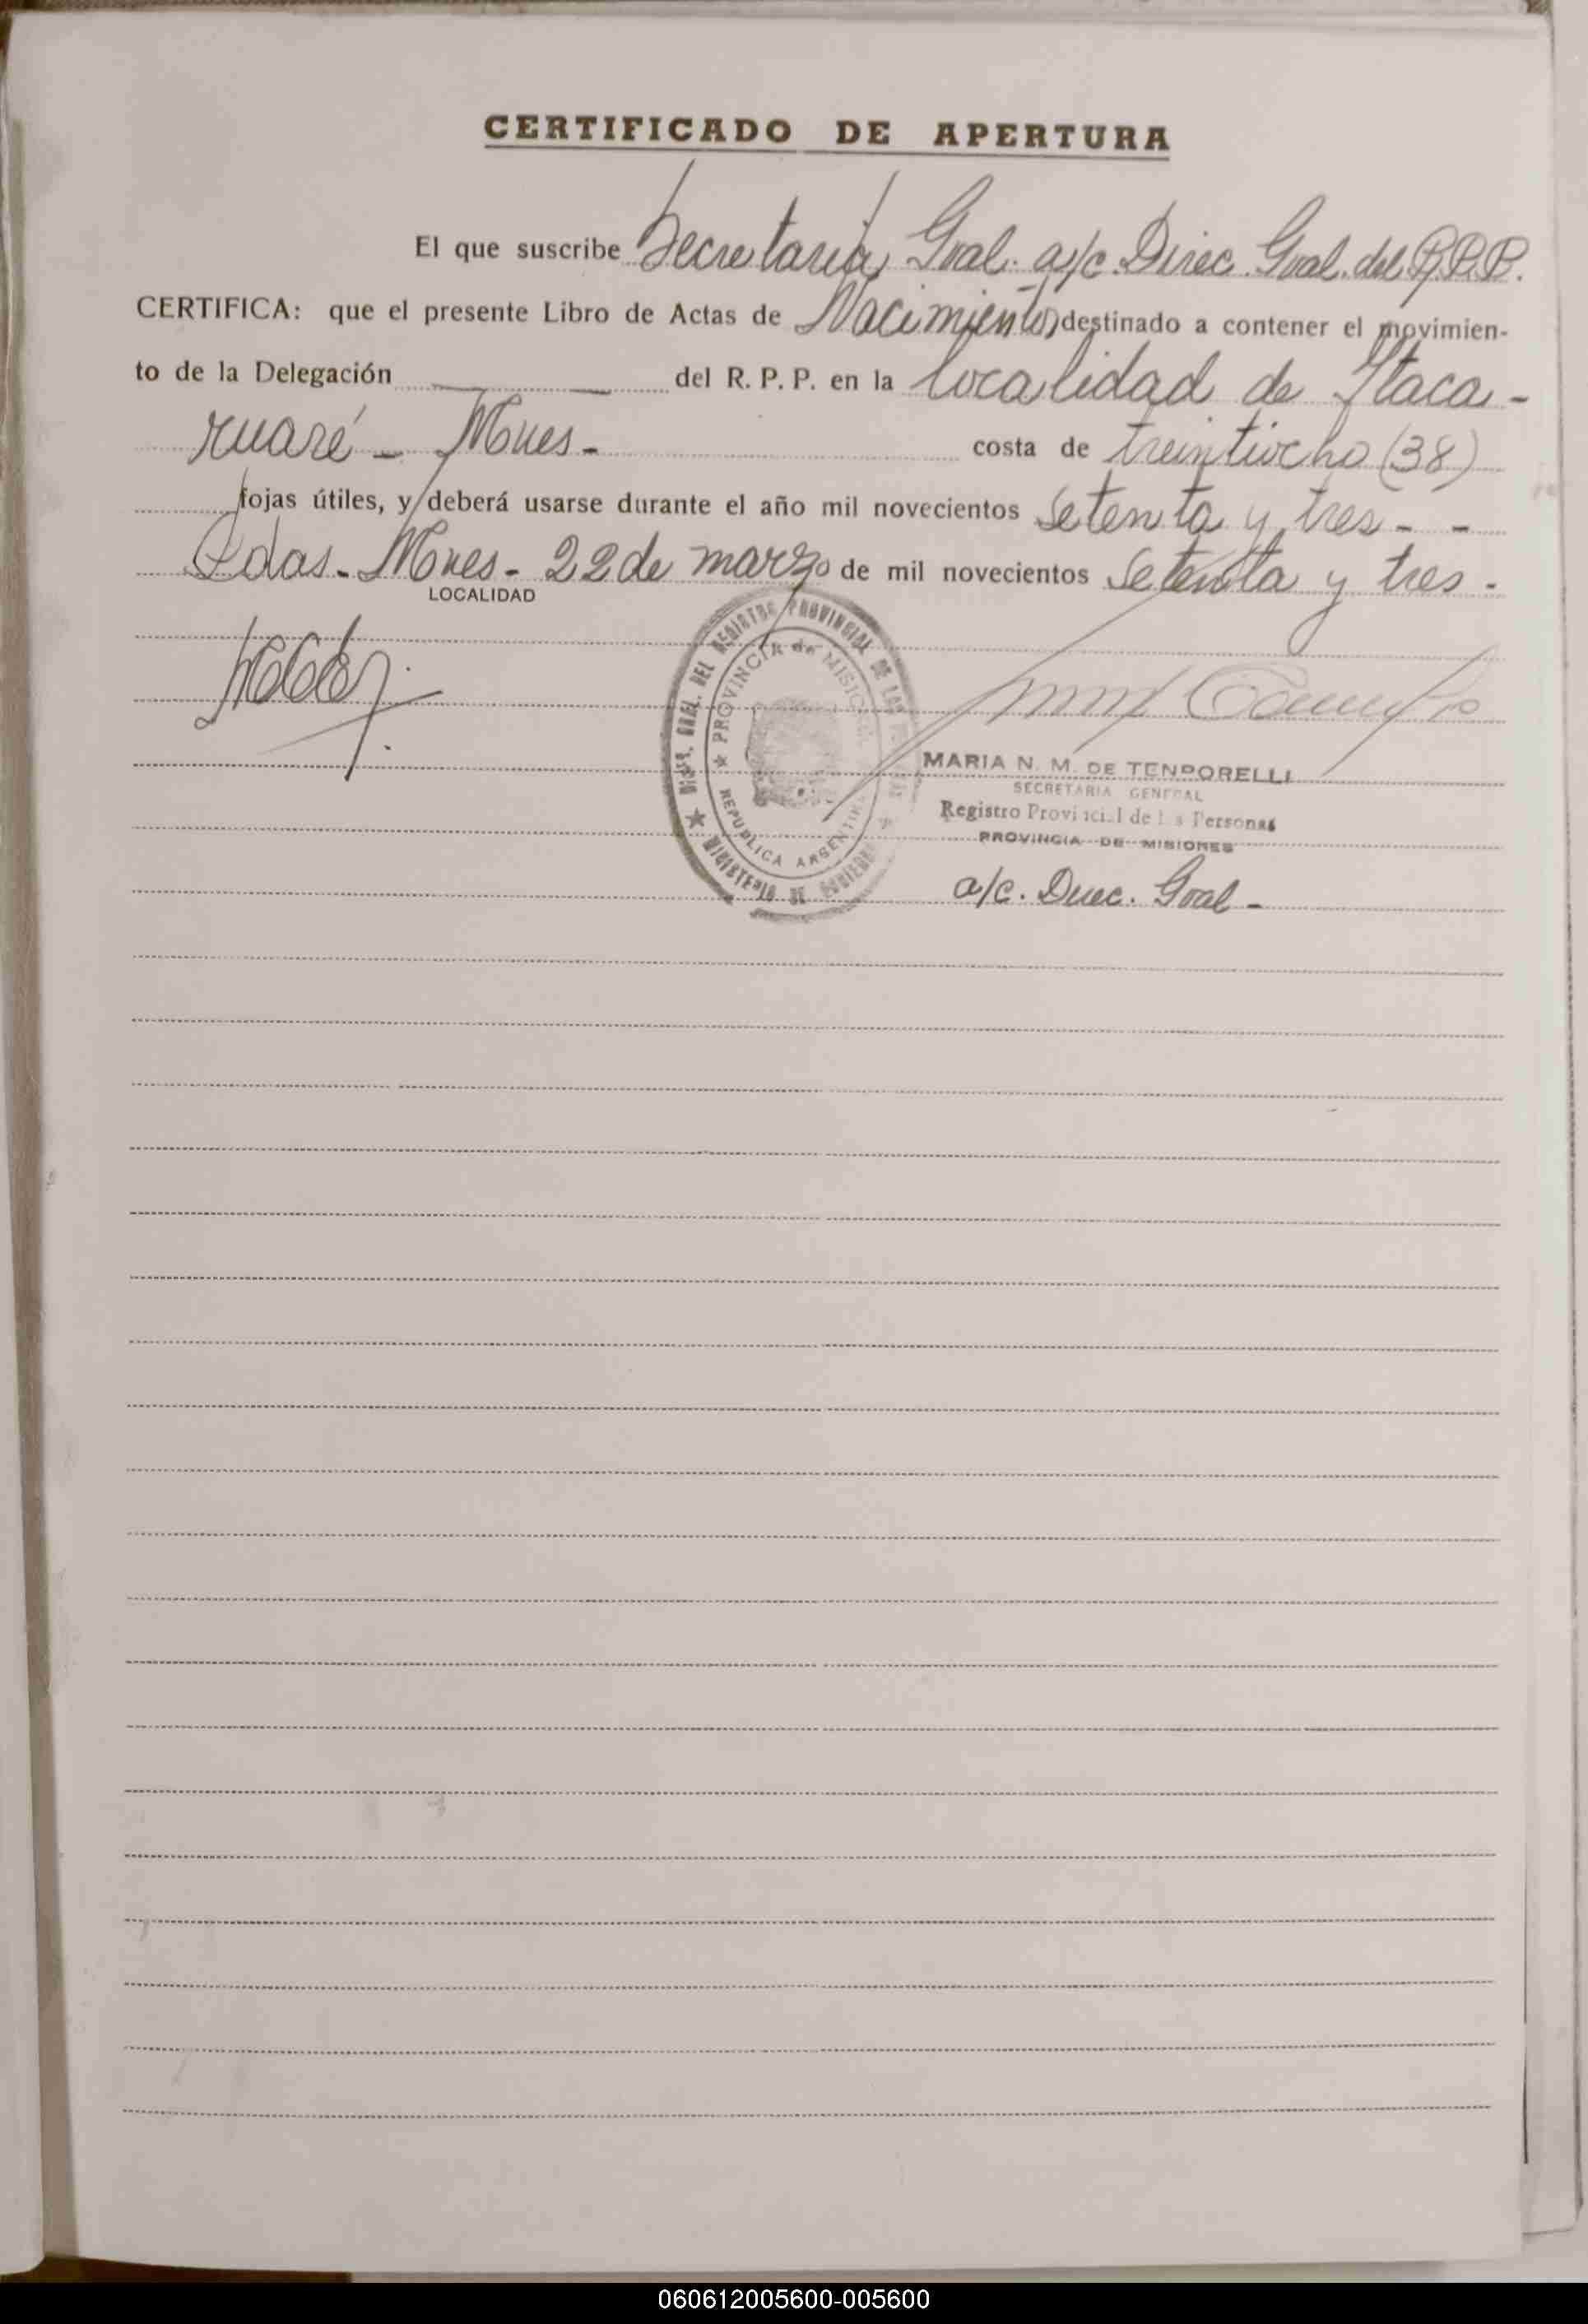 CERTIFICADO DE APERTURA
El que suscribe Secretaria Gral. a/c Direc. Gral. del R.P.P.
CERTIFICA: que el presente Libro de Actas de Nacimientos destinado a contener el movimien-
to de la Delegación ___ del R. P. P. en la localidad de Itaca-
ruaré - Mnes- costa de treintiocho (38)
fojas útiles, y deberá usarse durante el año mil novecientos setenta y tres - -
Pdas. Mnes - 22 de marzo de mil novecientos setenta y tres -
LOCALIDAD
DIREC. GRAL. DEL REGISTRO PROVINCIAL DE LAS
PROVINCIA de MISIONES
REPUBLICA ARGENTINA
MINISTERIO DE GOBIERNO
MARIA N. M. DE TENPORELLI
SECRETARIA GENERAL
Registro Provincial de las Personas
PROVINCIA DE MISIONES
a/c. Direc. Gral -
060612005600-005600